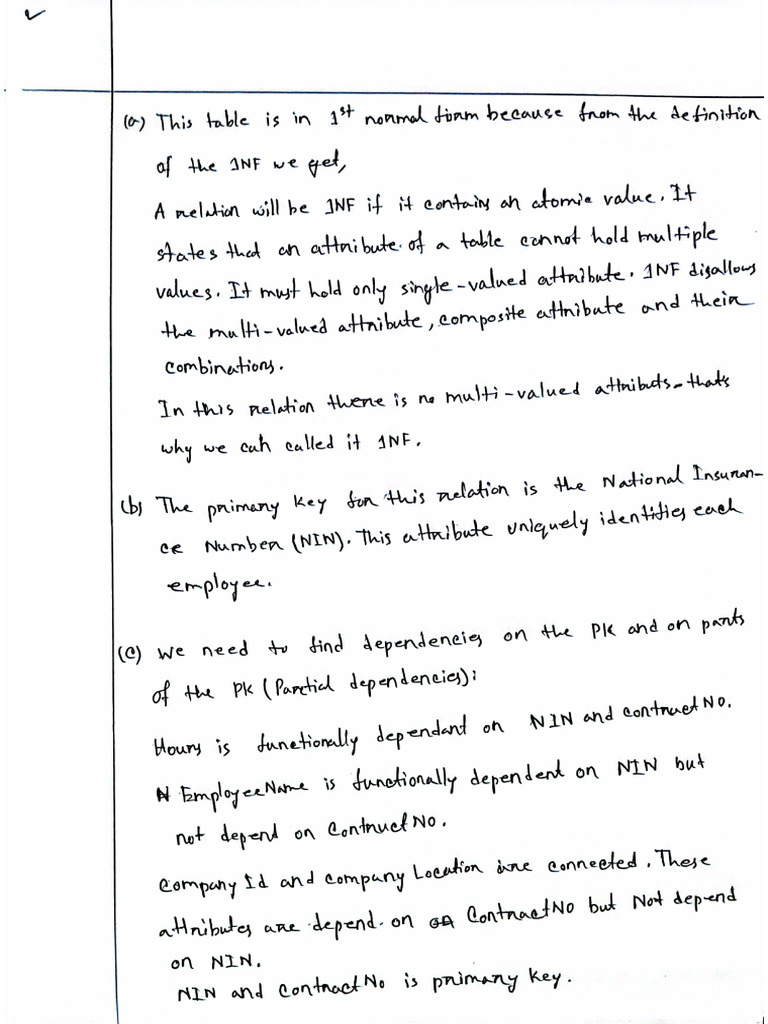 (a) This table is in 1st normal form because from the definition
of the 1NF we get,
A relation will be 1NF if it contains an atomic value. It
states that an attribute of a table cannot hold multiple
values. It must hold only single-valued attribute. 1NF disallows
the multi-valued attribute, composite attribute and their
combinations.
In this relation there is no multi-valued attributs thats
why we can called it 1NF.
(b) The primary key for this relation is the National Insuran-
ce Number (NIN). This attribute uniquely identifies each
employee.
(c) We need to find dependencies on the PK and on parts
of the PK (Partial dependencies):
Hours is functionally dependant on NIN and contractNo.
EmployeeName is functionally dependent on NIN but
not depend on ContructNo.
Company Id and company Location are connected. These
attributes are depend on ContractNo but Not depend
on NIN.
NIN and ContractNo is primary key.